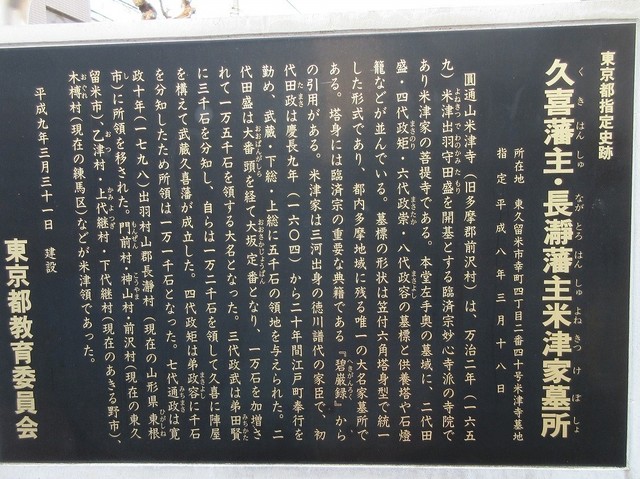 東京都指定史跡
久喜藩主・長瀞藩主米津家墓所
く き はん しゅ なが とろ はん しゅ よね きつ け ぼ しょ
所在地 東久留米市幸町四丁目二番四十号米津寺墓地
指定 平成八年三月十八日
圓通山米津寺（旧多摩郡前沢村）は、万治二年（一六五
九）米津出羽守田盛を開基とする臨済宗妙心寺派の寺院で
あり米津家の菩提寺である。本堂左手奥の墓域に、二代田
盛・四代政矩・六代政崇・八代政容の墓標と供養塔や石燈
籠などが並んでいる。墓標の形状は笠付六角塔身型で統一
した形式であり、都内多摩地域に残る唯一の大名家墓所で
ある。塔身には臨済宗の重要な典籍である『碧巌録』から
の引用がある。米津家は三河出身の徳川譜代の家臣で、初
代田政は慶長九年（一六〇四）から二十年間江戸町奉行を
勤め、武蔵・下総・上総に五千石の領地を与えられた。二
代田盛は大番頭を経て大坂定番となり、一万石を加増さ
れて一万五千石を領する大名となった。三代政武は弟田賢
に三千石を分知し、自らは一万二千石を領して久喜に陣屋
を構えて武蔵久喜藩が成立した。四代政矩は弟政容に千石
を分知したため所領は一万一千石となった。七代通政は寛
政十年（一七九八）出羽村山郡長瀞村（現在の山形県東根
市）に所領を移された。門前村・神山村・前沢村（現在の東久
留米市）、乙津村・上代継村・下代継村（現在のあきる野市）、
木榑村（現在の練馬区）などが米津領であった。
平成九年三月三十一日 建設
東京都教育委員会